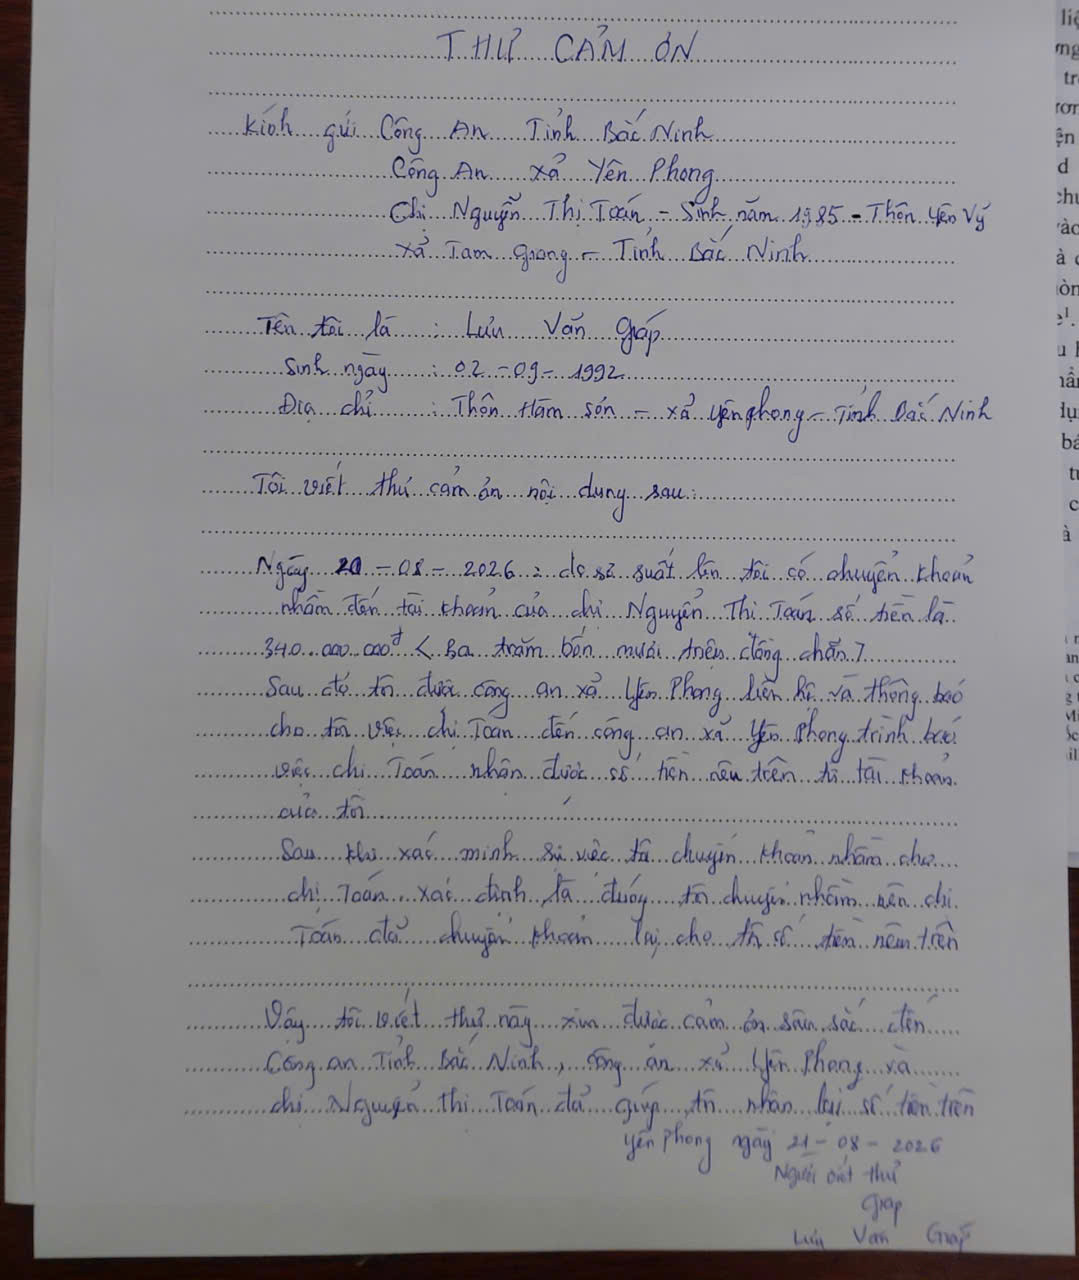 THƯ CẢM ƠN
Kính gửi Công An Tỉnh Bắc Ninh
Công An xã Yên Phong
Chị Nguyễn Thị Toán - Sinh năm 1985 - Thôn Yên Vỹ
xã Tam Giang - Tỉnh Bắc Ninh
Tên tôi là : Lưu Văn Giáp
Sinh ngày : 02-09-1992
Địa chỉ : Thôn Hàm Sơn - xã Yên phong - Tỉnh Bắc Ninh
Tôi viết thư cảm ơn nội dung sau:
Ngày 20-08-2026 : do sơ suất lên tôi có chuyển khoản
nhầm đến tài khoản của chị Nguyễn Thị Toán số tiền là
340.000.000đ < Ba trăm bốn mươi triệu đồng chẵn >
Sau đó tôi được công an xã Yên Phong liên hệ và thông báo
cho tôi việc chị Toán đến công an xã Yên Phong trình báo
việc chị Toán nhận được số tiền nêu trên từ tài khoản
của tôi
Sau khi xác minh sự việc tôi chuyển khoản nhầm cho
chị Toán xác định là đúng tôi chuyển nhầm nên chị
Toán đã chuyển khoản lại cho tôi số tiền nêu trên
Vậy tôi viết thư này xin được cảm ơn sâu sắc đến
Công an Tỉnh Bắc Ninh, công an xã Yên Phong và
chị Nguyễn Thị Toán đã giúp tôi nhận lại số tiền trên
Yên Phong ngày 21-08-2026
Người viết thư
Giáp
Lưu Văn Giáp